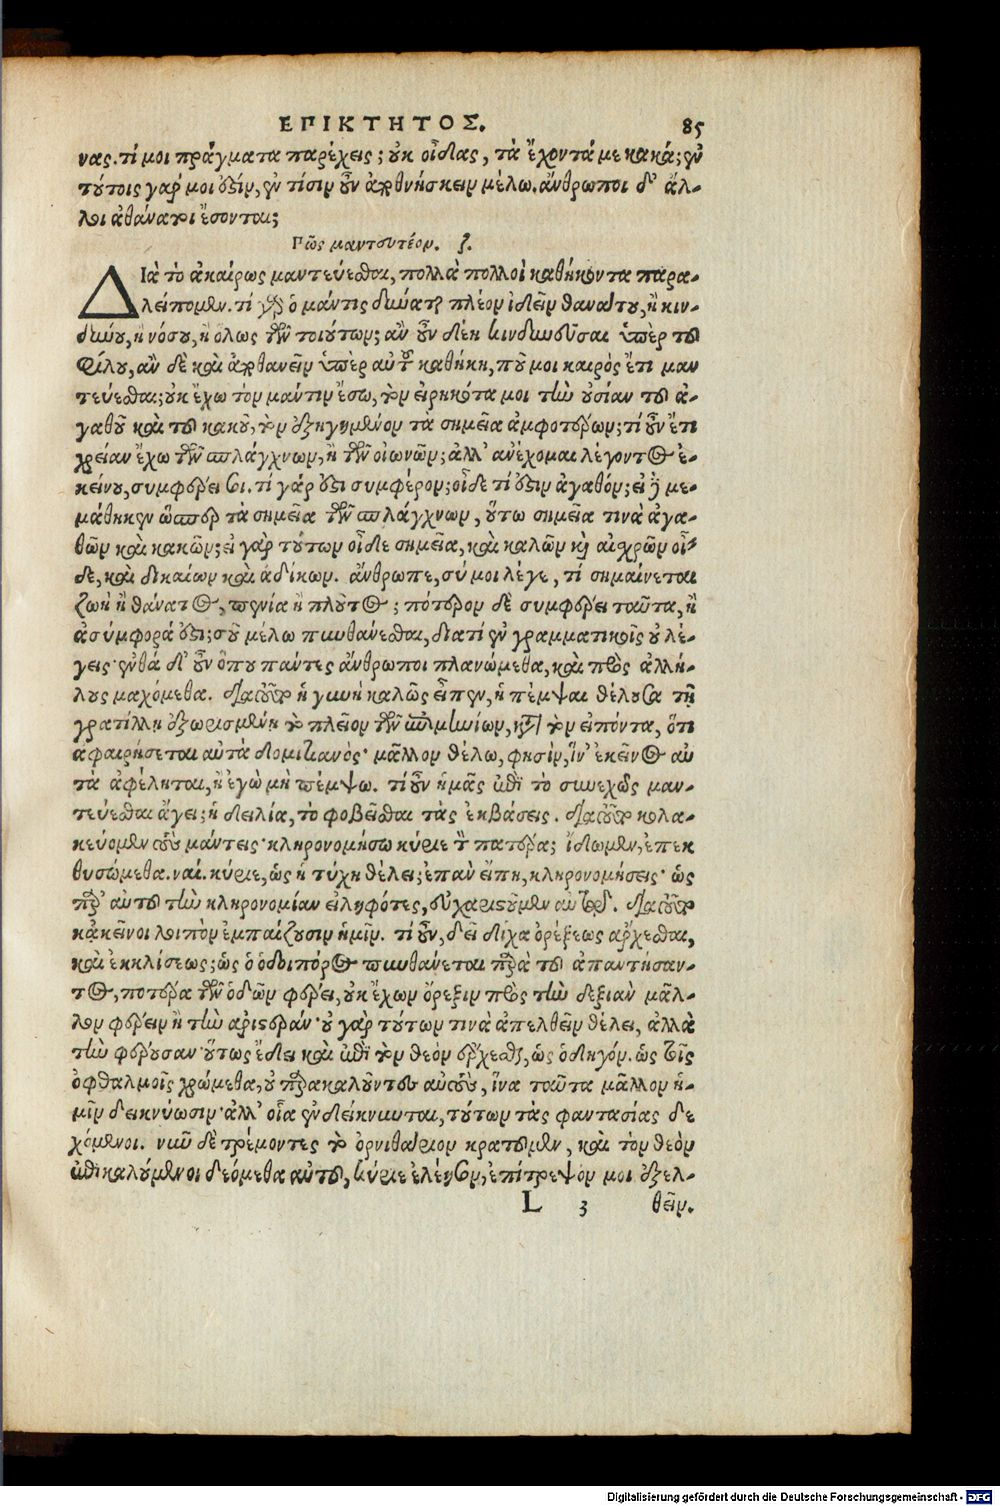 ΕΠΙΚΤΗΤΟΣ. 85
νας. τί μοι πράγματα παρέχεις; οὐκ οἶδας, τὰ ἔχοντά με κακά; ἐν
τούτοις γάρ μοι ἐστίν, ἐν τίσιν οὖν ἀποθνήσκειν μέλω. ἄνθρωποι δ' ἄλ-
λοι ἀθάνατοι ἔσονται;
Πῶς μαντευτέον. ζ.
ΔΙὰ τὸ ἀκαίρως μαντεύεσθαι, πολλὰ πολλοὶ καθήκοντα παρα-
λείπομεν. τί γὰρ ὁ μάντις δύναται πλέον ἰδεῖν θανάτου, ἢ κιν-
δύνου, ἢ νόσου, ἢ ὅλως τῶν τοιούτων; ἂν οὖν δέῃ κινδυνεῦσαι ὑπὲρ τοῦ
φίλου, ἂν δὲ καὶ ἀποθανεῖν ὑπὲρ αὐτοῦ καθήκῃ, ποῦ μοι καιρὸς ἔτι μαν
τεύεσθαι; οὐκ ἔχω τὸν μάντιν ἔσω, τὸν εἰρηκότα μοι τὴν οὐσίαν τοῦ ἀ-
γαθοῦ καὶ τοῦ κακοῦ, τὸν ἐξηγημένον τὰ σημεῖα ἀμφοτέρων; τί οὖν ἔτι
χρείαν ἔχω τῶν σπλάγχνων, ἢ τῶν οἰωνῶν; ἀλλ' ἀνέχομαι λέγοντος ἐ-
κείνου, συμφέρει σοι. τί γάρ ἐστι συμφέρον; οἶδε τί ἐστιν ἀγαθόν; εἰ δὲ με-
μάθηκεν ὥσπερ τὰ σημεῖα τῶν σπλάγχνων, οὕτω σημεῖα τινὰ ἀγα-
θῶν καὶ κακῶν; εἰ γὰρ τούτων οἶδε σημεῖα, καὶ καλῶν καὶ αἰσχρῶν οἶ-
δε, καὶ δικαίων καὶ ἀδίκων. ἄνθρωπε, σύ μοι λέγε, τί σημαίνεται
ζωὴ ἢ θάνατος, πενία ἢ πλοῦτος; πότερον δὲ συμφέρει ταῦτα, ἢ
ἀσύμφορά ἐστι; σοῦ μέλω πυνθάνεσθαι, διατί ἐν γραμματικοῖς οὐ λέ-
γεις· ἐνθά δ' οὖν ὅπου πάντες ἄνθρωποι πλανώμεθα, καὶ πρὸς ἀλλή-
λους μαχόμεθα. διατοῦτο ἡ γυνὴ καλῶς εἶπεν, ἡ πέμψαι θέλουσα τῇ
γρατίλλῃ ἐξωρισμένῃ τὸ πλεῖον τῶν ἐπιμηνίων, κατὰ τὸν εἰπόντα, ὅτι
ἀφαιρήσεται αὐτὰ δομιτιανός· μᾶλλον θέλω, φησίν, ἵν' ἐκεῖνος αὐ
τὰ ἀφέληται, ἢ ἐγὼ μὴ πέμψω. τί οὖν ἡμᾶς ἐπὶ τὸ συνεχῶς μαν-
τεύεσθαι ἄγει; ἡ δειλία, τὸ φοβεῖσθαι τὰς ἐκβάσεις. διατοῦτο κολα-
κεύομεν τοὺς μάντεις· κληρονομήσω κύριε τὸν πατέρα; ἴδωμεν, ἐπεκ
θυσώμεθα. ναί. κύριε, ὡς ἡ τύχη θέλει; ἐπὰν εἴπῃ, κληρονομήσεις· ὡς
παρ' αὐτοῦ τὴν κληρονομίαν εἰληφότες, εὐχαριστοῦμεν αὐτῷ. διατοῦτο
κἀκεῖνοι λοιπὸν ἐμπαίζουσιν ἡμῖν. τί οὖν, δεῖ δίχα ὀρέξεως ἄρχεσθαι,
καὶ ἐκκλίσεως; ὡς ὁ ὁδοιπόρος πυνθάνεται παρὰ τοῦ ἀπαντήσαν-
τος, ποτέρα τῶν ὁδῶν φέρει, οὐκ ἔχων ὄρεξιν πρὸς τὴν δεξιὰν μᾶλ-
λον φέρειν ἢ τὴν ἀριστεράν· οὐ γὰρ τούτων τινὰ ἀπελθεῖν θέλει, ἀλλὰ
τὴν φέρουσαν· οὕτως ἔδει καὶ ἐπὶ τὸν θεὸν ἔρχεσθαι, ὡς ὁδηγόν. ὡς τοῖς
ὀφθαλμοῖς χρώμεθα, οὐ παρακαλοῦντες αὐτοὺς, ἵνα ταῦτα μᾶλλον ἡ-
μῖν δεικνύωσιν· ἀλλ' οἷα ἐνδείκνυνται, τούτων τὰς φαντασίας δε
χόμενοι. νῦν δὲ τρέμοντες τὸ ὀρνιθάριον κρατοῦμεν, καὶ τὸν θεὸν
ἐπικαλούμενοι δεόμεθα αὐτοῦ, κύριε ἐλέησον, ἐπίτρεψόν μοι ἐξελ-
L 3 θεῖν.
Digitalisierung gefördert durch die Deutsche Forschungsgemeinschaft - DFG